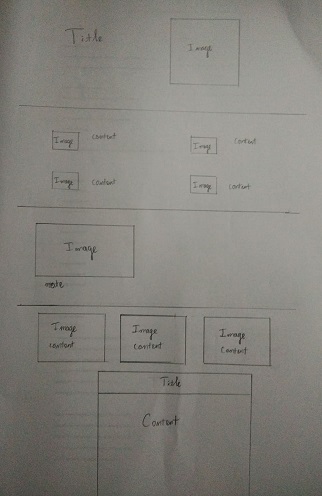 Title
Image
Image content
Image content
Image content
Image content
Image
Image content
Image content
Image content
Title
Content